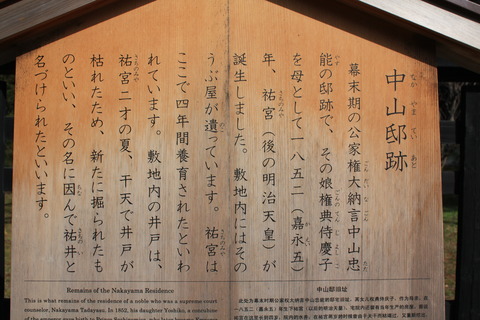 中山邸跡
幕末期の公家権大納言中山忠
能の邸跡で、その娘権典侍慶子
を母として一八五二（嘉永五）
年、祐宮（後の明治天皇）が
誕生しました。敷地内にはその
うぶ屋が遺っています。祐宮は
ここで四年間養育されたといわ
れています。敷地内の井戸は、
祐宮二才の夏、干天で井戸が
枯れたため、新たに掘られたも
のといい、その名に因んで祐井と
名づけられたといいます。
Remains of the Nakayama Residence
This is what remains of the residence of a noble who was a supreme court
counselor, Nakayama Tadayasu. In 1852, his daughter Yoshiko, a concubine
中山邸旧址